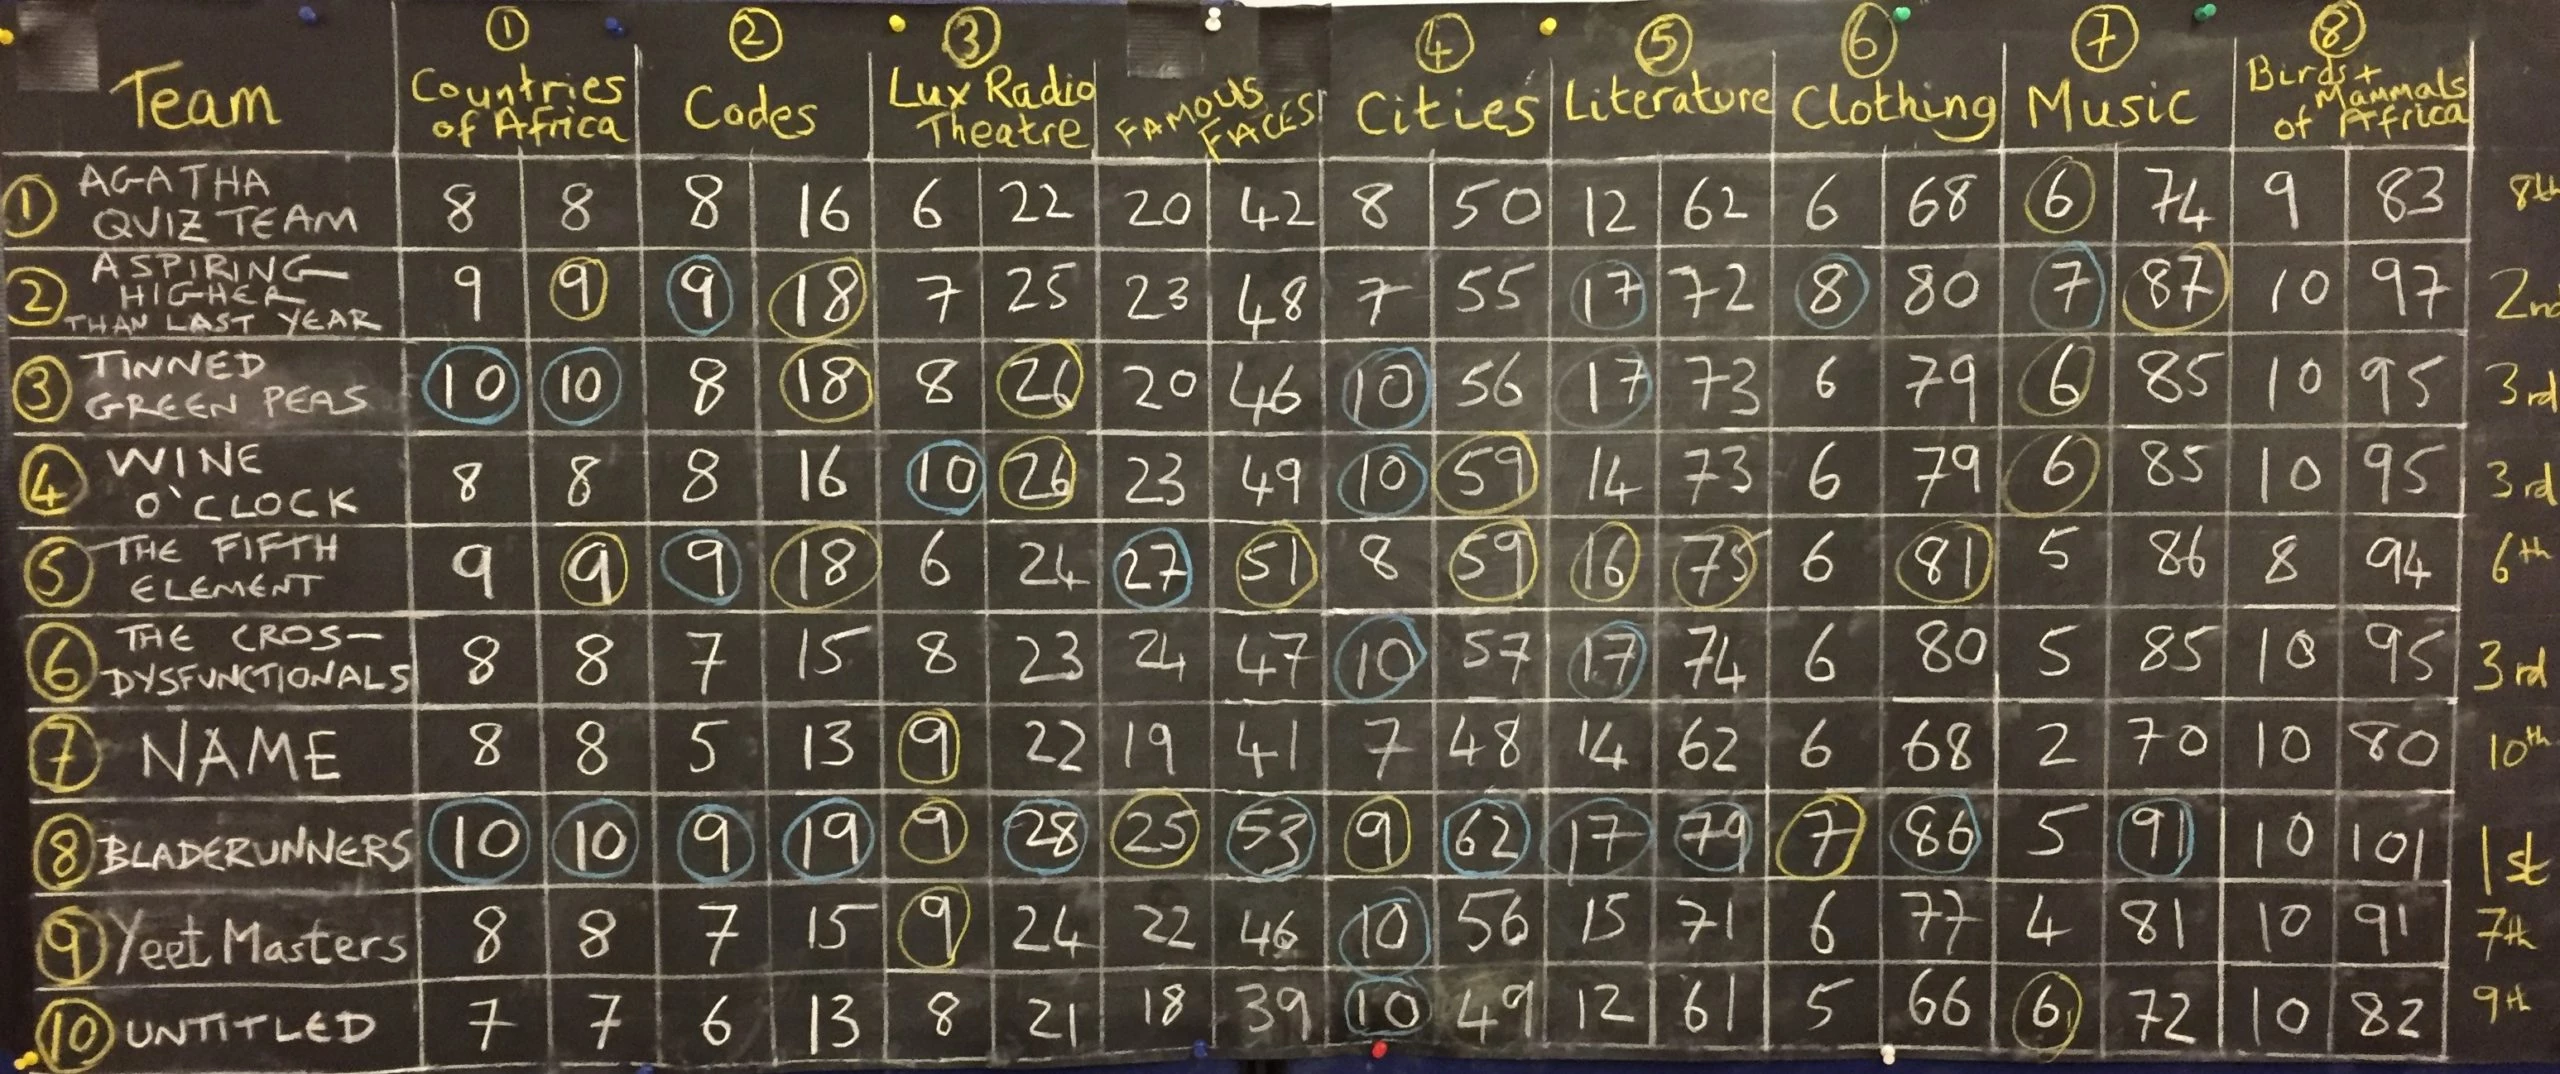 ① ② ③ ④ ⑤ ⑥ ⑦ ⑧
Team Countries of Africa Codes Lux Radio Theatre FAMOUS FACES Cities Literature Clothing Music Birds + Mammals of Africa
① AGATHA QUIZ TEAM 8 8 8 16 6 22 20 42 8 50 12 62 6 68 6 74 9 83 8th
② ASPIRING HIGHER THAN LAST YEAR 9 9 9 18 7 25 23 48 7 55 17 72 8 80 7 87 10 97 2nd
③ TINNED GREEN PEAS 10 10 8 18 8 26 20 46 10 56 17 73 6 79 6 85 10 95 3rd
④ WINE O'CLOCK 8 8 8 16 10 26 23 49 10 59 14 73 6 79 6 85 10 95 3rd
⑤ THE FIFTH ELEMENT 9 9 9 18 6 24 27 51 8 59 16 75 6 81 5 86 8 94 6th
⑥ THE CROS-DYSFUNCTIONALS 8 8 7 15 8 23 24 47 10 57 17 74 6 80 5 85 10 95 3rd
⑦ NAME 8 8 5 13 9 22 19 41 7 48 14 62 6 68 2 70 10 80 10th
⑧ BLADERUNNERS 10 10 9 19 9 28 25 53 9 62 17 79 7 86 5 91 10 101 1st
⑨ Yeet Masters 8 8 7 15 9 24 22 46 10 56 15 71 6 77 4 81 10 91 7th
⑩ UNTITLED 7 7 6 13 8 21 18 39 10 49 12 61 5 66 6 72 10 82 9th